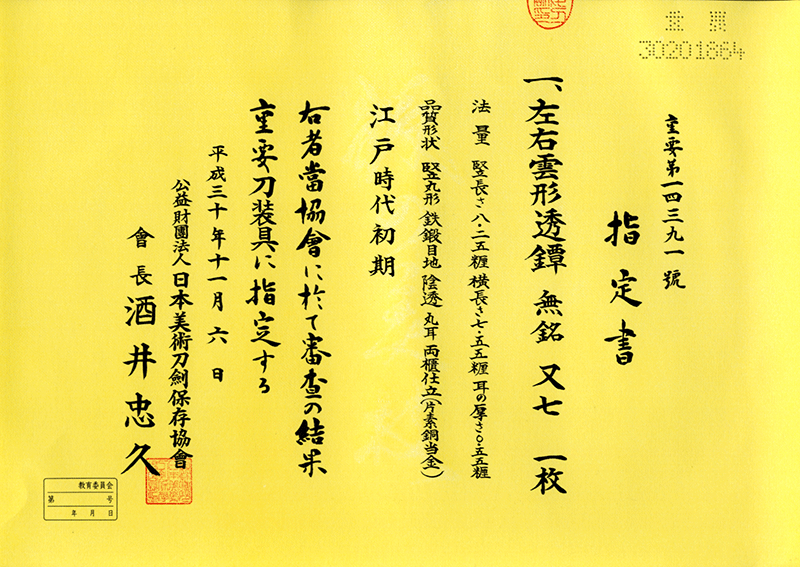 重要
30201864
重要第一四三九一號
指定書
一、左右雲形透鐔 無銘 又七 一枚
法量 竪長さ八・二五糎 横長さ七・五五糎 耳の厚さ〇・五五糎
品質形状 竪丸形 鉄鍛目地 陰透 丸耳 両櫃仕立(片素銅当金)
江戸時代初期
右者當協會に於て審査の結果
重要刀装具に指定する
平成三十年十一月六日
公益財團法人日本美術刀劍保存協會
會長 酒井忠久
教育委員会
第 号
年 月 日